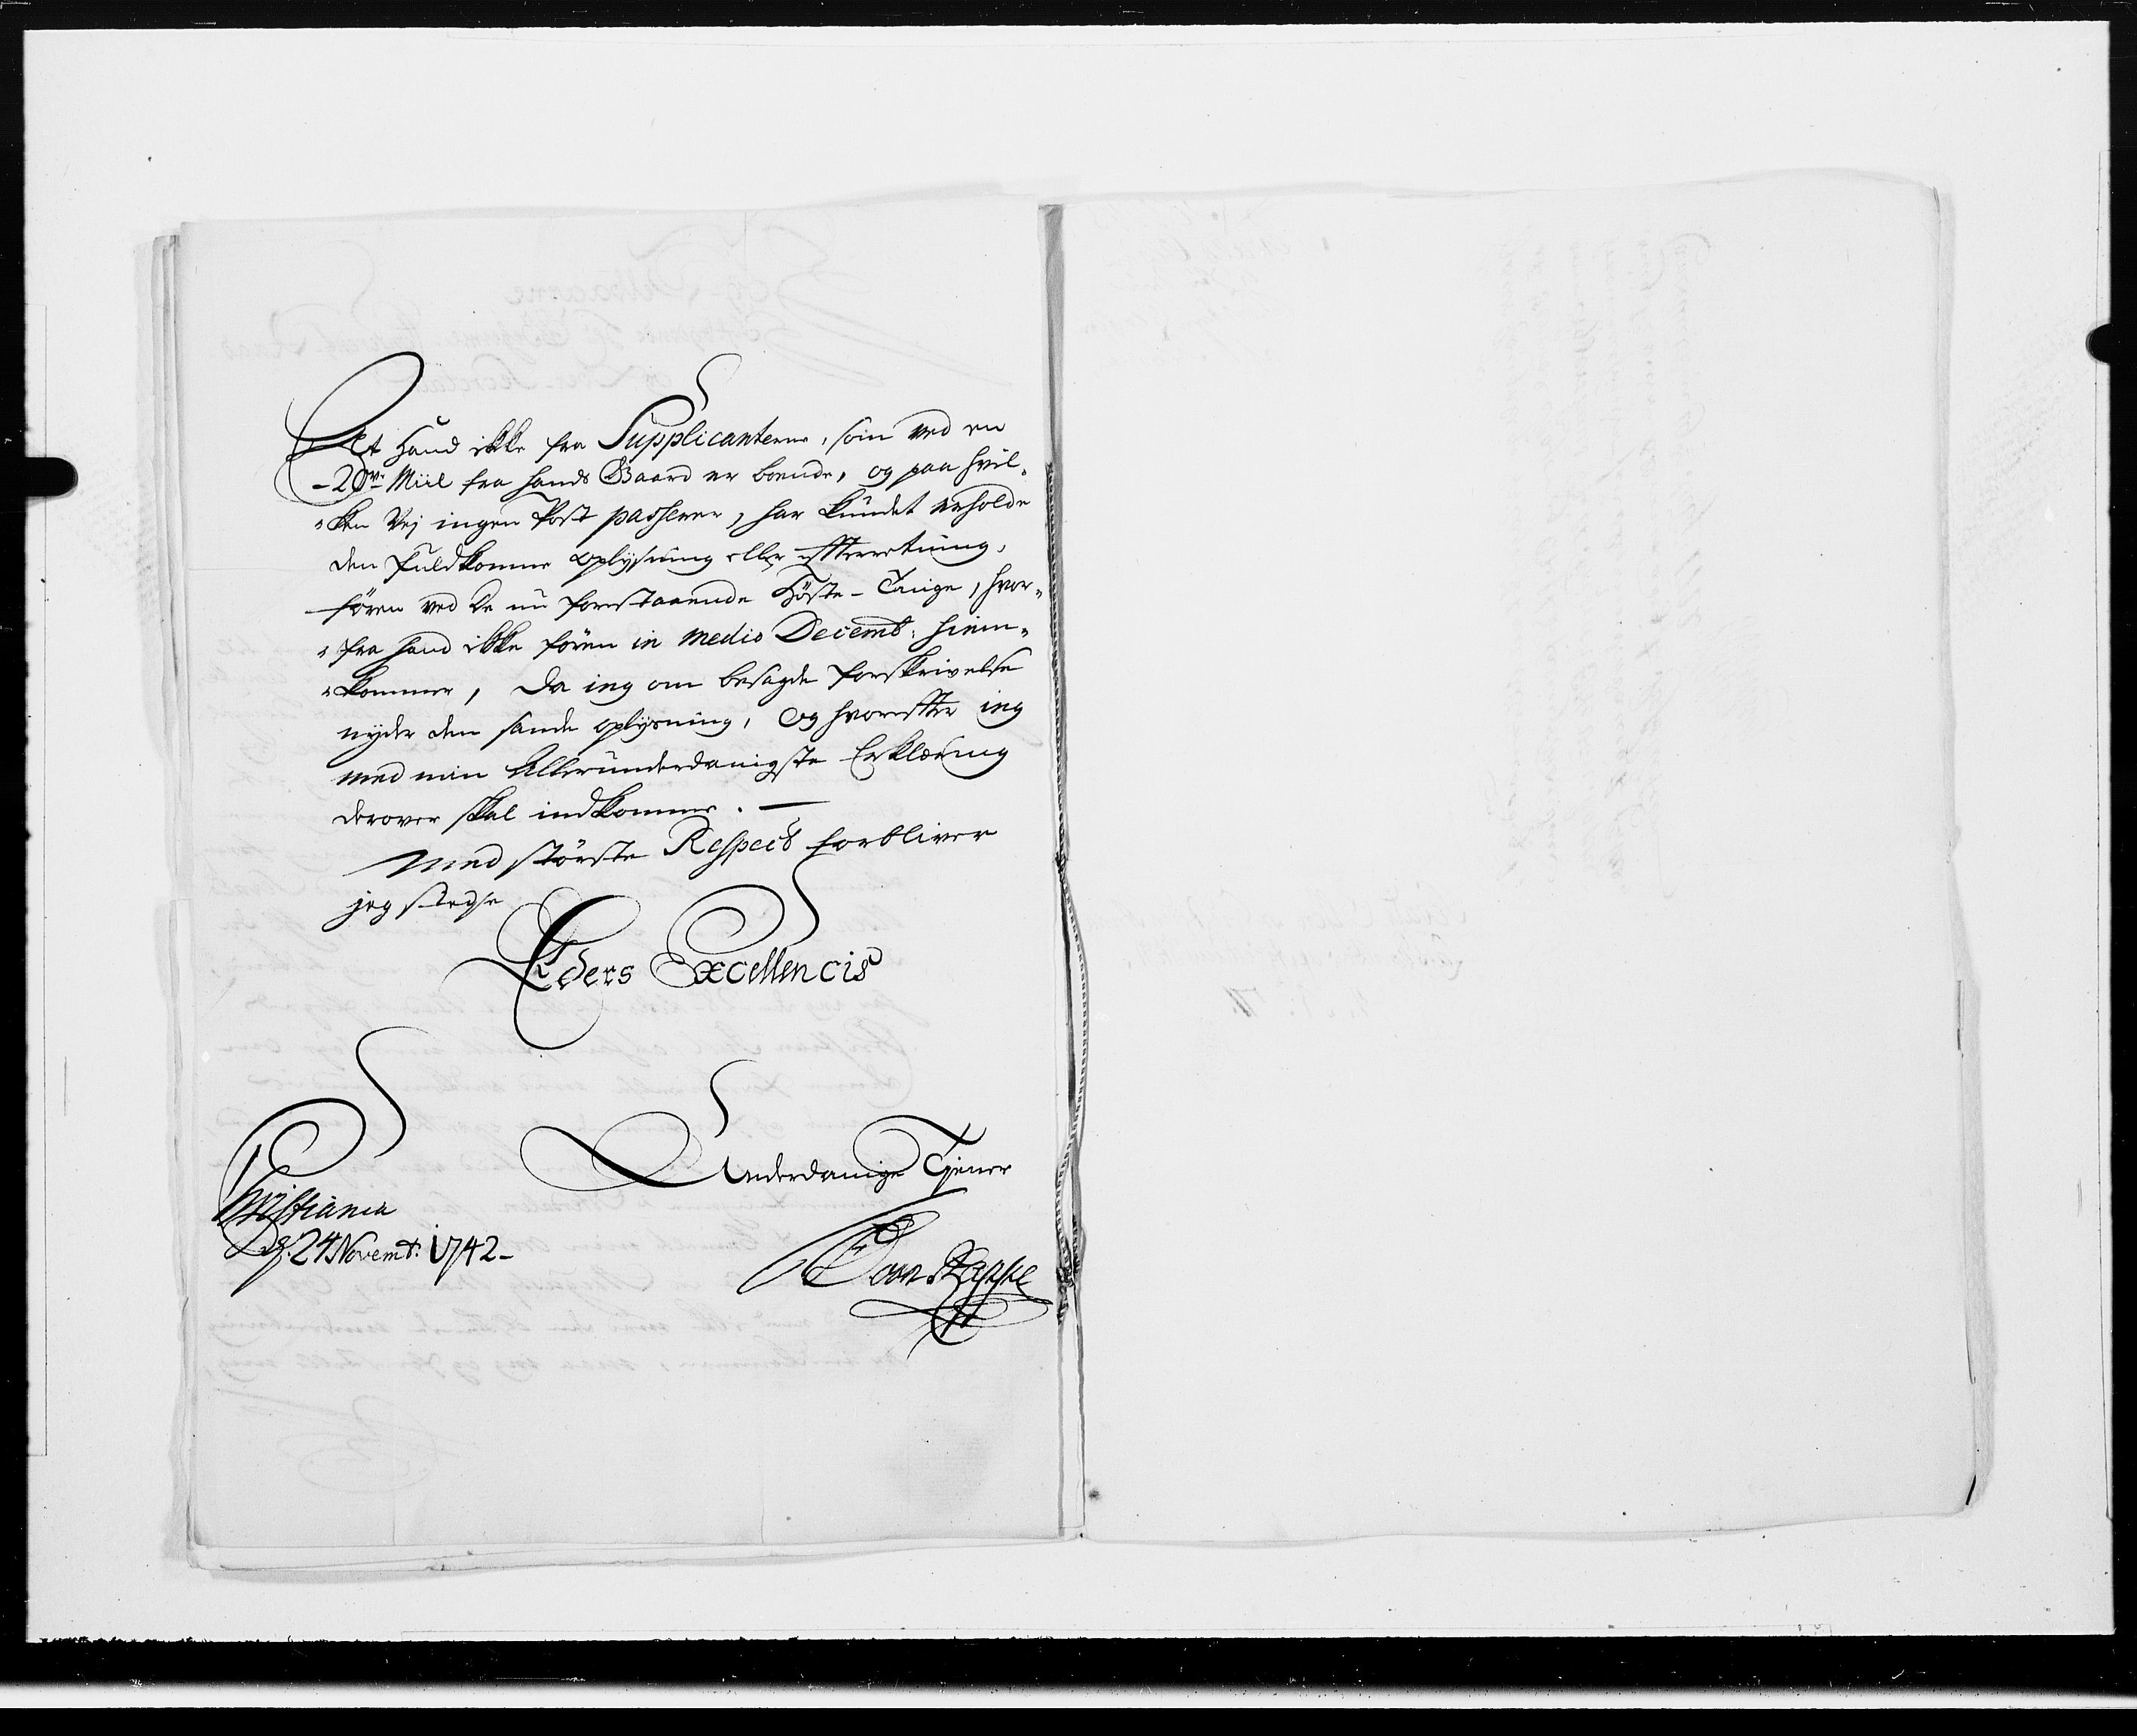 At Hand ikke fra Supplicanterne, som ved en
- 20ve Miil fra hands Gaard er boende, og paa hvil-
-ken Vej ingen Post passerer, har kundet erholde
den fuldkomne oplysning eller effterretning,
fören ved de nu forestaaende Höste-Tinge, hvor-
-fra hand ikke fören in Medio Decembr: hiem-
-kommer, Da ieg om besagde forskrivelse
nyder den sande oplysning, Og hvoreffter ieg
med min Allerunderdanigste Erklæring
derover skal indkomme. —
Med störste Respect forbliver
jeg stedse
Eders Excellencis
Underdanige Tjener
Christiania
d. 24 Novembr: 1742 -